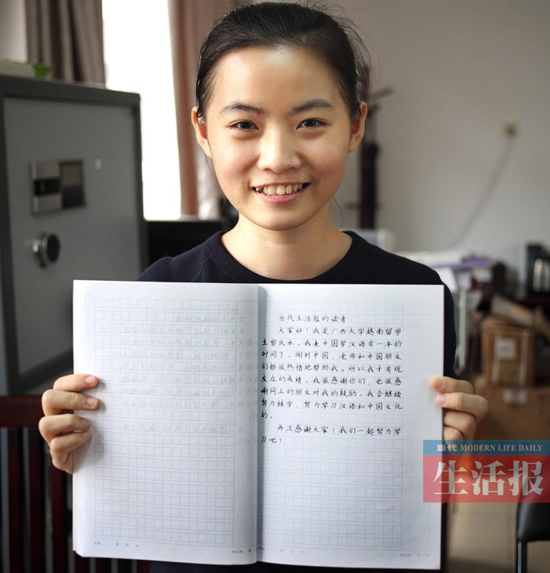 当代生活报的读者
大家好!我是广西大学越南留学
生黎氏禾。我来中国学汉语有一年的
时间了。刚到中国,老师和中国朋友
们都很热情地帮助我。所以我才有现
在的成绩。我很感谢你们,也很感
谢网上的朋友对我的鼓励。我会继续
努力练字,努力学习汉语和中国文化
的。
再次感谢大家!我们一起努力学
习吧!
当代 MODERN LIFE DAILY
生活报